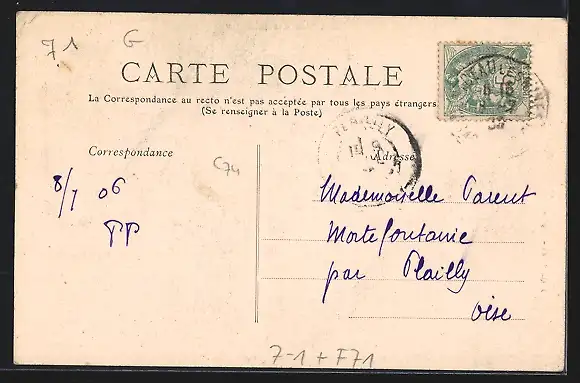 71 G
CARTE POSTALE
La Correspondance au recto n'est pas acceptée par tous les pays étrangers.
(Se renseigner à la Poste)
Correspondance
Adresse
C74
PLAILLY
8/7 06
PP
Mademoiselle Parent
Mortefontaine
par Plailly
Oise
7-1 + F71